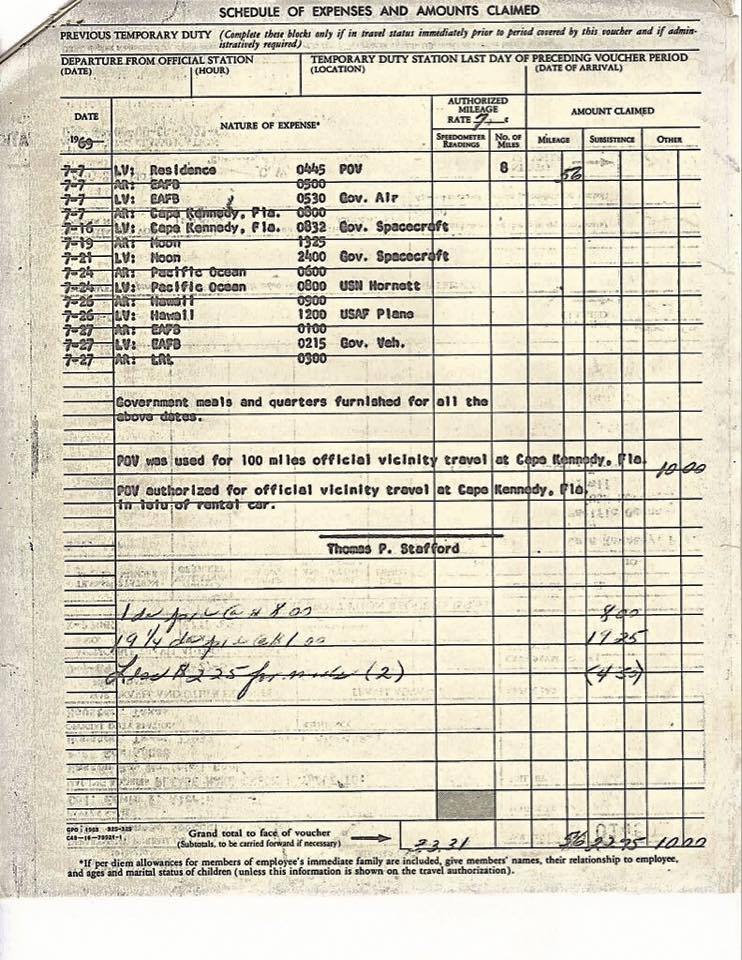 SCHEDULE OF EXPENSES AND AMOUNTS CLAIMED
PREVIOUS TEMPORARY DUTY (Complete these blocks only if in travel status immediately prior to period covered by this voucher and if admin-
istratively required)
DEPARTURE FROM OFFICIAL STATION
(DATE) (HOUR)
TEMPORARY DUTY STATION LAST DAY OF PRECEDING VOUCHER PERIOD
(LOCATION) (DATE OF ARRIVAL)
DATE
1969
NATURE OF EXPENSE*
AUTHORIZED
MILEAGE
RATE 7 c
SPEEDOMETER READINGS
NO. OF MILES
AMOUNT CLAIMED
MILEAGE SUBSISTENCE OTHER
7-7 LV: Residence 0445 POV 8 56
7-7 AR: EAFB 0500
7-7 LV: EAFB 0530 Gov. Air
7-7 AR: Cape Kennedy, Fla. 0800
7-16 LV: Cape Kennedy, Fla. 0832 Gov. Spacecraft
7-19 AR: Moon 1325
7-21 LV: Moon 2400 Gov. Spacecraft
7-24 AR: Pacific Ocean 0600
7-24 LV: Pacific Ocean 0800 USN Hornett
7-26 AR: Hawaii 0900
7-26 LV: Hawaii 1200 USAF Plane
7-27 AR: EAFB 0100
7-27 LV: EAFB 0215 Gov. Veh.
7-27 AR: LRL 0300
Government meals and quarters furnished for all the
above dates.
POV was used for 100 miles official vicinity travel at Cape Kennedy, Fla. 10.00
POV authorized for official vicinity travel at Cape Kennedy, Fla.
in leiu of rental car.
Thomas P. Stafford
1 day 8 00 8 00
19 1/4 days 1 00 19 25
Less $2 25 for meals (2) (4 50)
GPO : 1968
Grand total to face of voucher
(Subtotals, to be carried forward if necessary) 56 22 75 10 00
*If per diem allowances for members of employee's immediate family are included, give members' names, their relationship to employee,
and ages and marital status of children (unless this information is shown on the travel authorization).